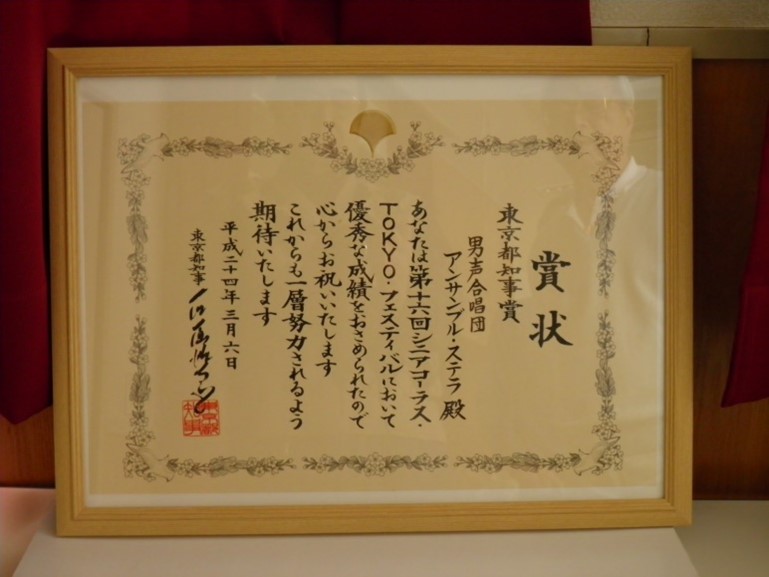 賞状
東京都知事賞
男声合唱団
アンサンブル・ステラ 殿
あなたは第十六回シニアコーラス・
TOKYO・フェスティバルにおいて
優秀な成績をおさめられたので
心からお祝いいたします
これからも一層努力されるよう
期待いたします
平成二十四年三月六日
東京都知事